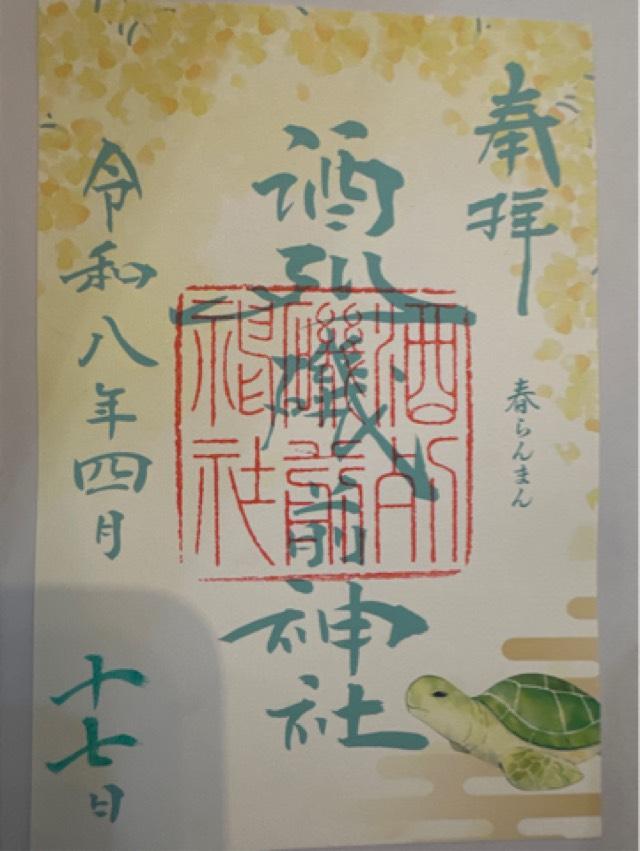 奉拝
春らんまん
酒列磯前神社
酒列磯前神社
令和八年四月
十七日